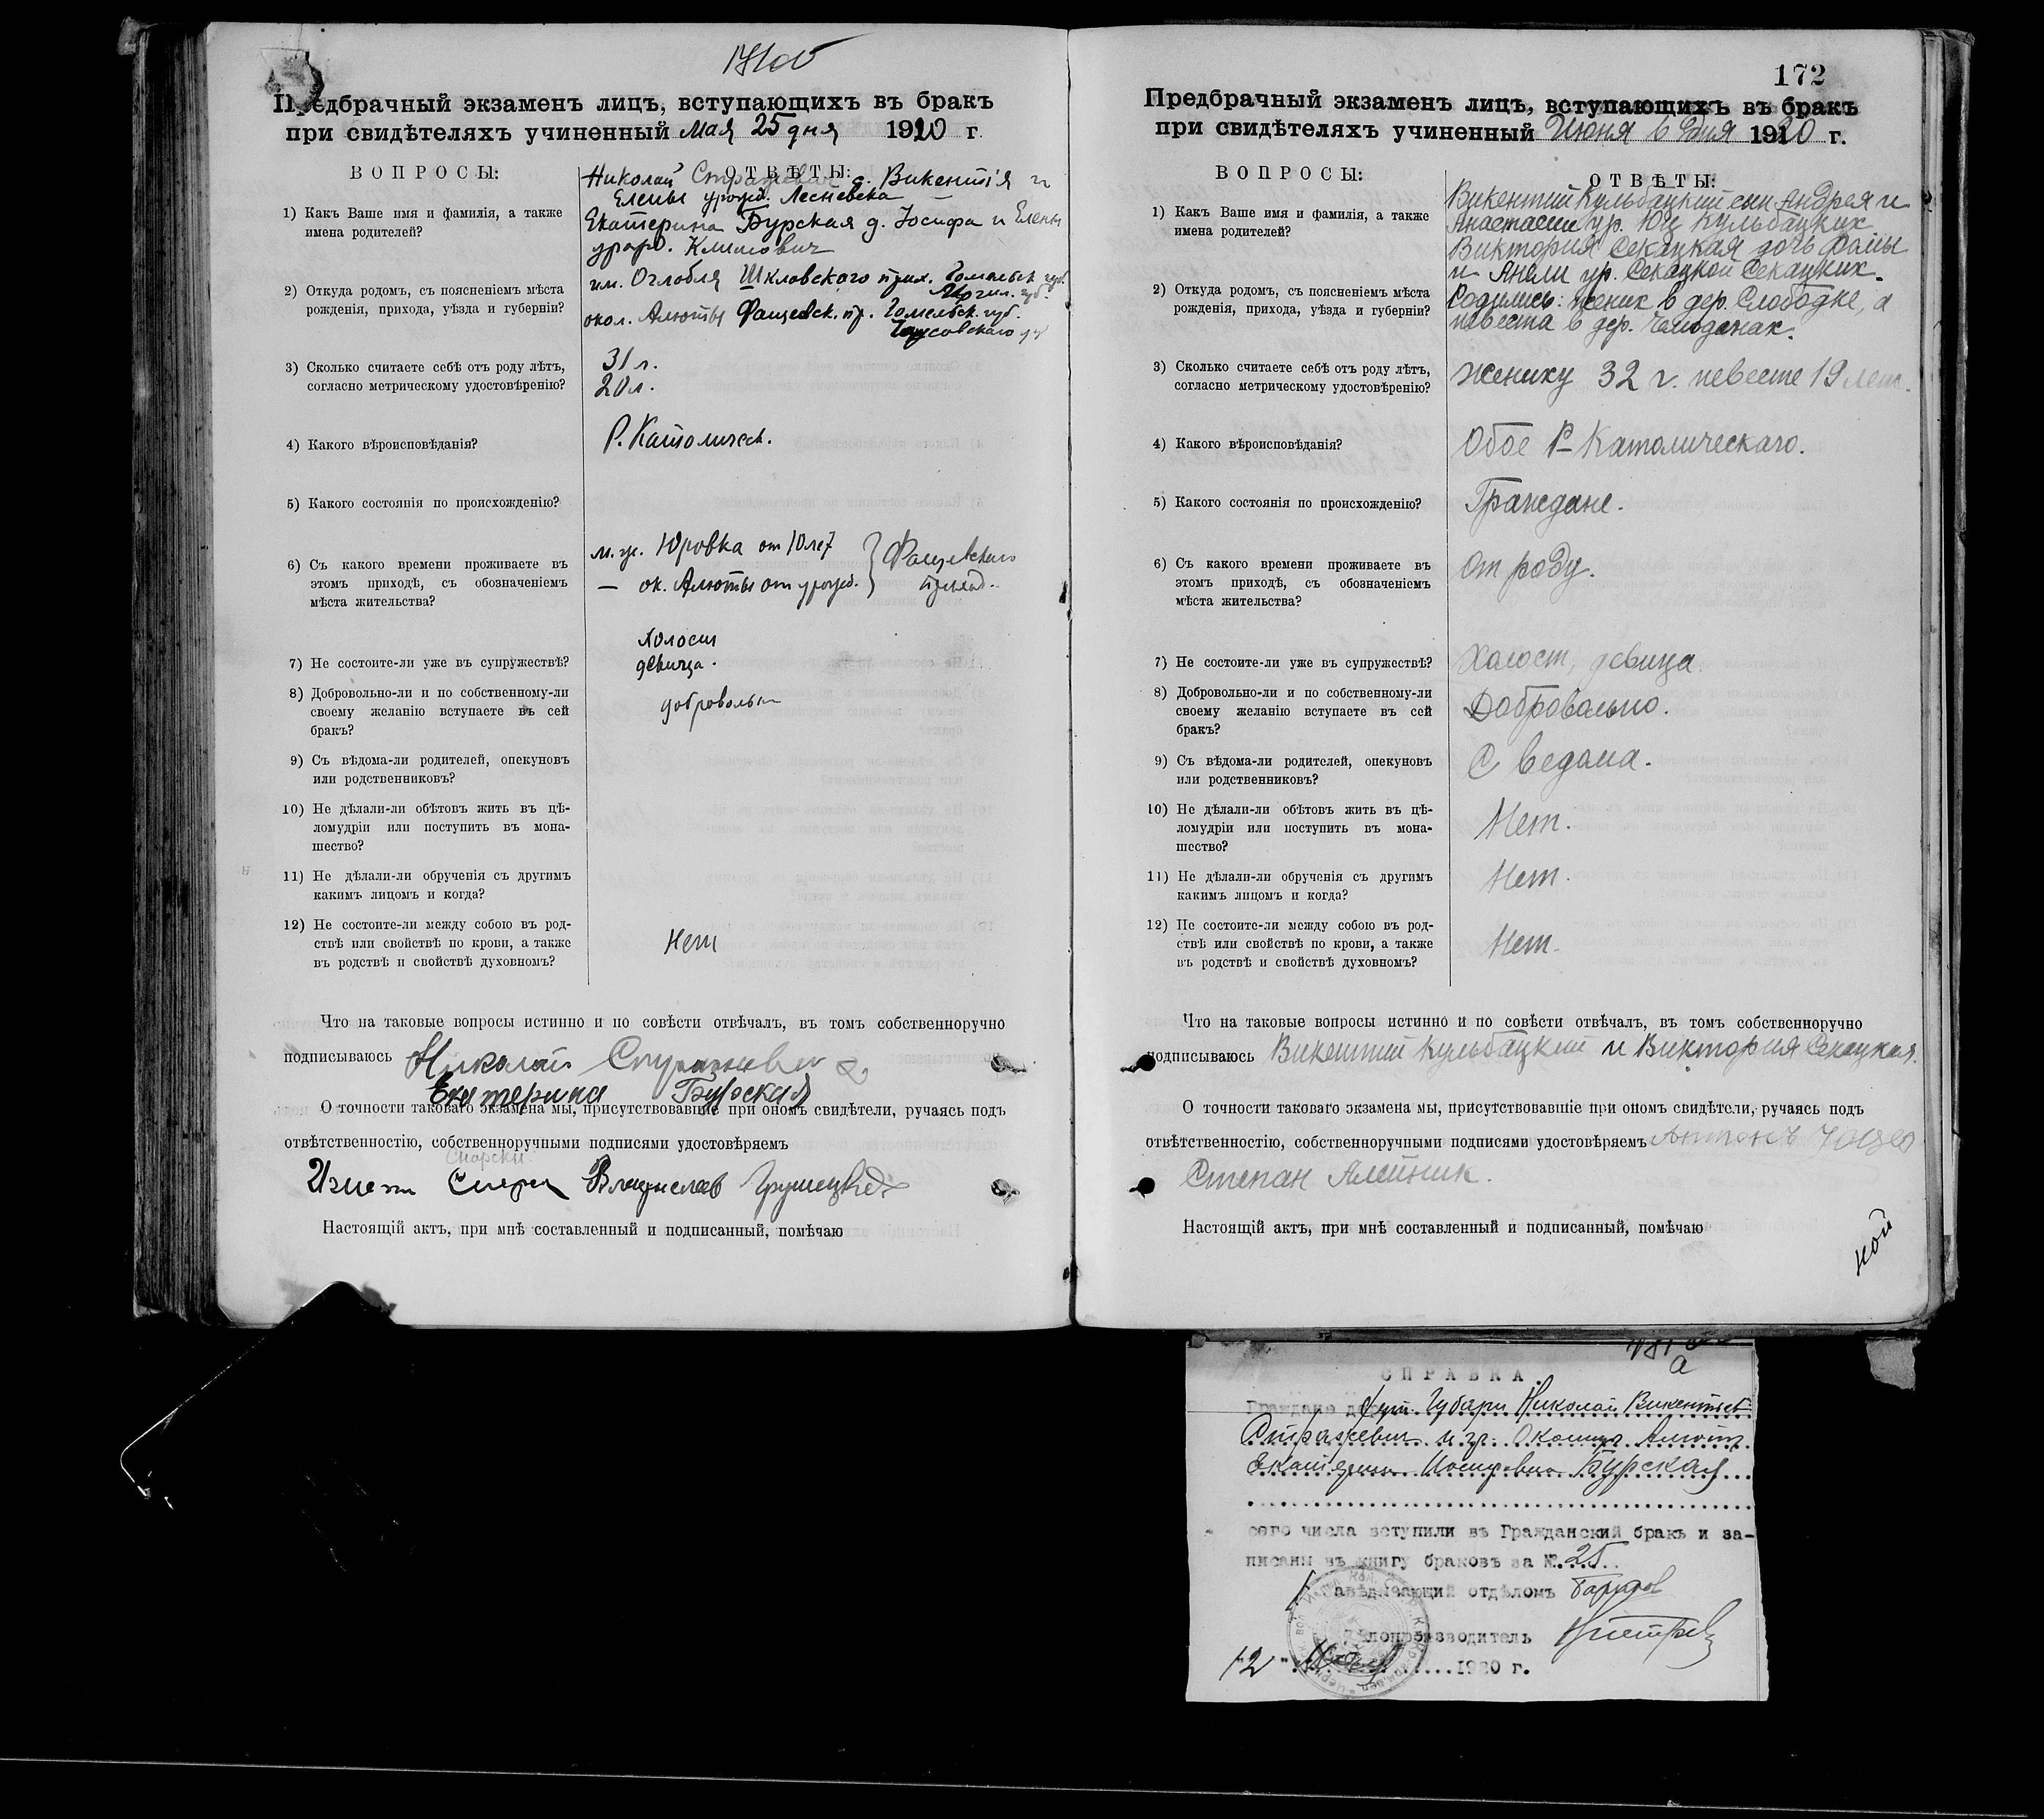 171об
Предбрачный экзаменъ лицъ, вступающихъ въ бракъ
при свидѣтеляхъ учиненный Мая 25 дня 1920 г.
ВОПРОСЫ:
ОТВѢТЫ:
1) Какъ Ваше имя и фамилія, а также
имена родителей?
Николай Стражевич с. Викентія и
Елены урожд. Лесневска
Екатерина Бурская д. Іосифа и Елены
урожд. Климович
2) Откуда родомъ, съ поясненіемъ мѣста
рожденія, прихода, уѣзда и губерніи?
им. Оглобля Шкловского прих. Гомельск. губ.
Могил. губ.
окол. Алюты Фащевск. пр. Гомельск. губ.
Чаусовского у
3) Сколько считаете себѣ отъ роду лѣтъ,
согласно метрическому удостовѣренію?
31 л.
20 л.
4) Какого вѣроисповѣданія?
Р. Католическ.
5) Какого состоянія по происхожденію?
6) Съ какого времени проживаете въ
этомъ приходѣ, съ обозначеніемъ
мѣста жительства?
Юровка от 10 лет
— ок. Алюты от урожд.
Фащевского
приход.
7) Не состоите-ли уже въ супружествѣ?
Холост
девица.
8) Добровольно-ли и по собственному-ли
своему желанію вступаете въ сей
бракъ?
добровольн
9) Съ вѣдома-ли родителей, опекуновъ
или родственниковъ?
10) Не дѣлали-ли обѣтовъ жить въ цѣ-
ломудріи или поступить въ мона-
шество?
11) Не дѣлали-ли обрученія съ другимъ
какимъ лицомъ и когда?
12) Не состоите-ли между собою въ род-
ствѣ или свойствѣ по крови, а также
въ родствѣ и свойствѣ духовномъ?
Нет
Что на таковые вопросы истинно и по совѣсти отвѣчалъ, въ томъ собственноручно
подписываюсь Николай Стражевич
Екатерина Бурская
О точности таковаго экзамена мы, присутствовавшіе при ономъ свидѣтели, ручаясь подъ
отвѣтственностію, собственноручными подписями удостовѣряемъ
Владислав Грушецкий
Настоящій актъ, при мнѣ составленный и подписанный, помѣчаю
172
Предбрачный экзаменъ лицъ, вступающихъ въ бракъ
при свидѣтеляхъ учиненный Июня 6 дня 1920 г.
ВОПРОСЫ:
ОТВѢТЫ:
1) Какъ Ваше имя и фамилія, а также
имена родителей?
Викентий Кульбацкий сын Андрея и
Анастасии ур. Кульбацких
Виктория Секацкая дочь Фомы
и Анели ур. Секацкой Секацких.
2) Откуда родомъ, съ поясненіемъ мѣста
рожденія, прихода, уѣзда и губерніи?
Родились: жених в дер. Слободке, а
невеста в дер. Чемоданах.
3) Сколько считаете себѣ отъ роду лѣтъ,
согласно метрическому удостовѣренію?
Жениху 32 г. невесте 19 лет.
4) Какого вѣроисповѣданія?
Обое Р-Католическаго.
5) Какого состоянія по происхожденію?
Граждане.
6) Съ какого времени проживаете въ
этомъ приходѣ, съ обозначеніемъ
мѣста жительства?
От роду.
7) Не состоите-ли уже въ супружествѣ?
Холост, девица.
8) Добровольно-ли и по собственному-ли
своему желанію вступаете въ сей
бракъ?
Добровольно.
9) Съ вѣдома-ли родителей, опекуновъ
или родственниковъ?
С ведома.
10) Не дѣлали-ли обѣтовъ жить въ цѣ-
ломудріи или поступить въ мона-
шество?
Нет.
11) Не дѣлали-ли обрученія съ другимъ
какимъ лицомъ и когда?
Нет.
12) Не состоите-ли между собою въ род-
ствѣ или свойствѣ по крови, а также
въ родствѣ и свойствѣ духовномъ?
Нет.
Что на таковые вопросы истинно и по совѣсти отвѣчалъ, въ томъ собственноручно
подписываюсь Викентий Кульбацкий и Виктория Секацкая.
О точности таковаго экзамена мы, присутствовавшіе при ономъ свидѣтели, ручаясь подъ
отвѣтственностію, собственноручными подписями удостовѣряемъ Антонъ
Степан Алейник.
Настоящій актъ, при мнѣ составленный и подписанный, помѣчаю
кой
а
СПРАВКА.
Граждане Губари Николай Викентьев
Стражевич и гр. Околицы Алюты
Екатерина Иосифовна Бурская
сего числа вступили въ Гражданский бракъ и за-
писаны въ книгу браковъ за №. 25
Завѣдывающий отдѣломъ
Дѣлопроизводитель
"12" Мая 1920 г.